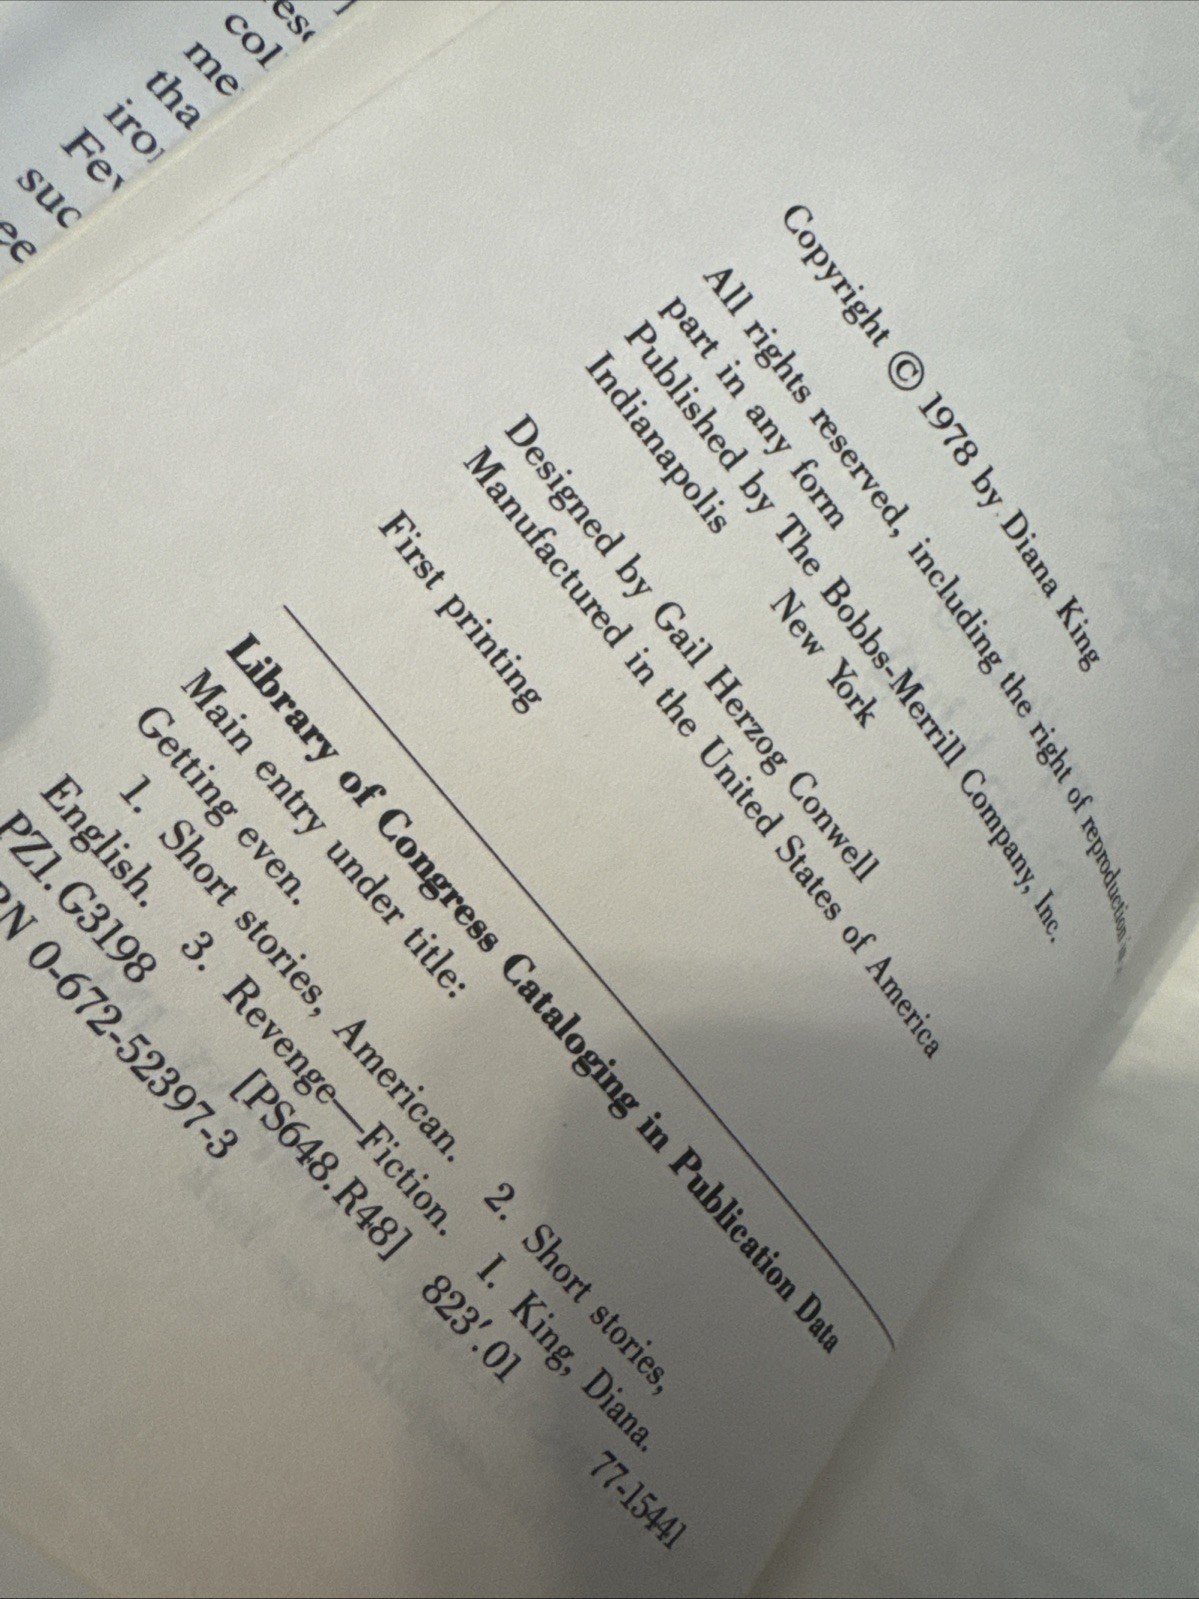 Copyright © 1978 by Diana King
All rights reserved, including the right of reproduction
part in any form
Published by The Bobbs-Merrill Company, Inc.
Indianapolis New York
Designed by Gail Herzog Conwell
Manufactured in the United States of America
First printing
Library of Congress Cataloging in Publication Data
Main entry under title:
Getting even.
1. Short stories, American. 2. Short stories,
English. 3. Revenge—Fiction. I. King, Diana.
PZ1.G3198 [PS648.R48] 823'.01 77-15441
BN 0-672-52397-3
col
me
tha
suc